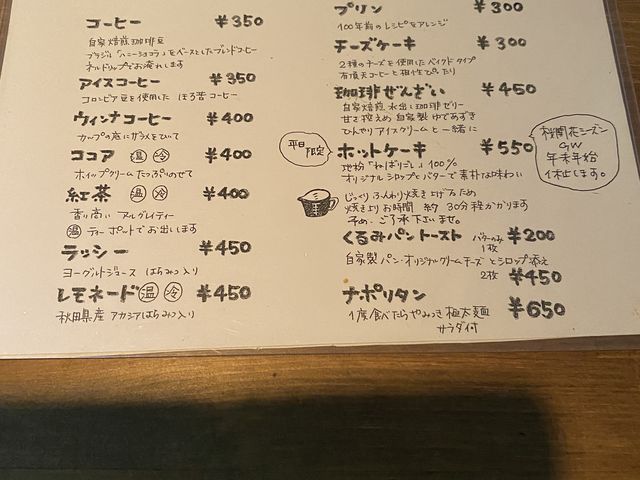 コーヒー ¥350
自家焙煎珈琲豆
ブラジル「ハニーショコラ」をベースとしたブレンドコーヒー
ネルドリップでお淹れします
アイスコーヒー ¥350
コロンビア豆を使用した ほろ苦コーヒー
ウィンナコーヒー ¥400
カップの底にザラメをひいて
ココア 温 冷 ¥400
ホイップクリームたっぷりのせて
紅茶 温 冷 ¥400
香り高い アールグレイティー
温 ティーポットでお出します
ラッシー ¥450
ヨーグルトジュース はちみつ入り
レモネード 温 冷 ¥450
秋田県産 アカシアはちみつ入り
プリン ¥300
100年前のレシピをアレンジ
チーズケーキ ¥300
2種のチーズを使用したベイクドタイプ
有頂天コーヒーと相性ぴったり
珈琲ぜんざい ¥450
自家焙煎 水出し珈琲ゼリー
甘さ控えめ 自家製 ゆであずき
ひんやりアイスクリームと一緒に
平日限定
ホットケーキ ¥550
地粉「ねばりごし」100%
オリジナルシロップとバターで素朴な味わい
じっくりふんわり焼き上げるため
焼き上りお時間 約30分程かかります
予め・ご了承下さいませ。
GW
年末年始
休止します。
くるみパントースト バターのみ 1枚 ¥200
自家製パン・オリジナルクリームチーズとシロップ添え
2枚 ¥450
ナポリタン ¥650
1度食べたらやみつき 極太麺
サラダ付